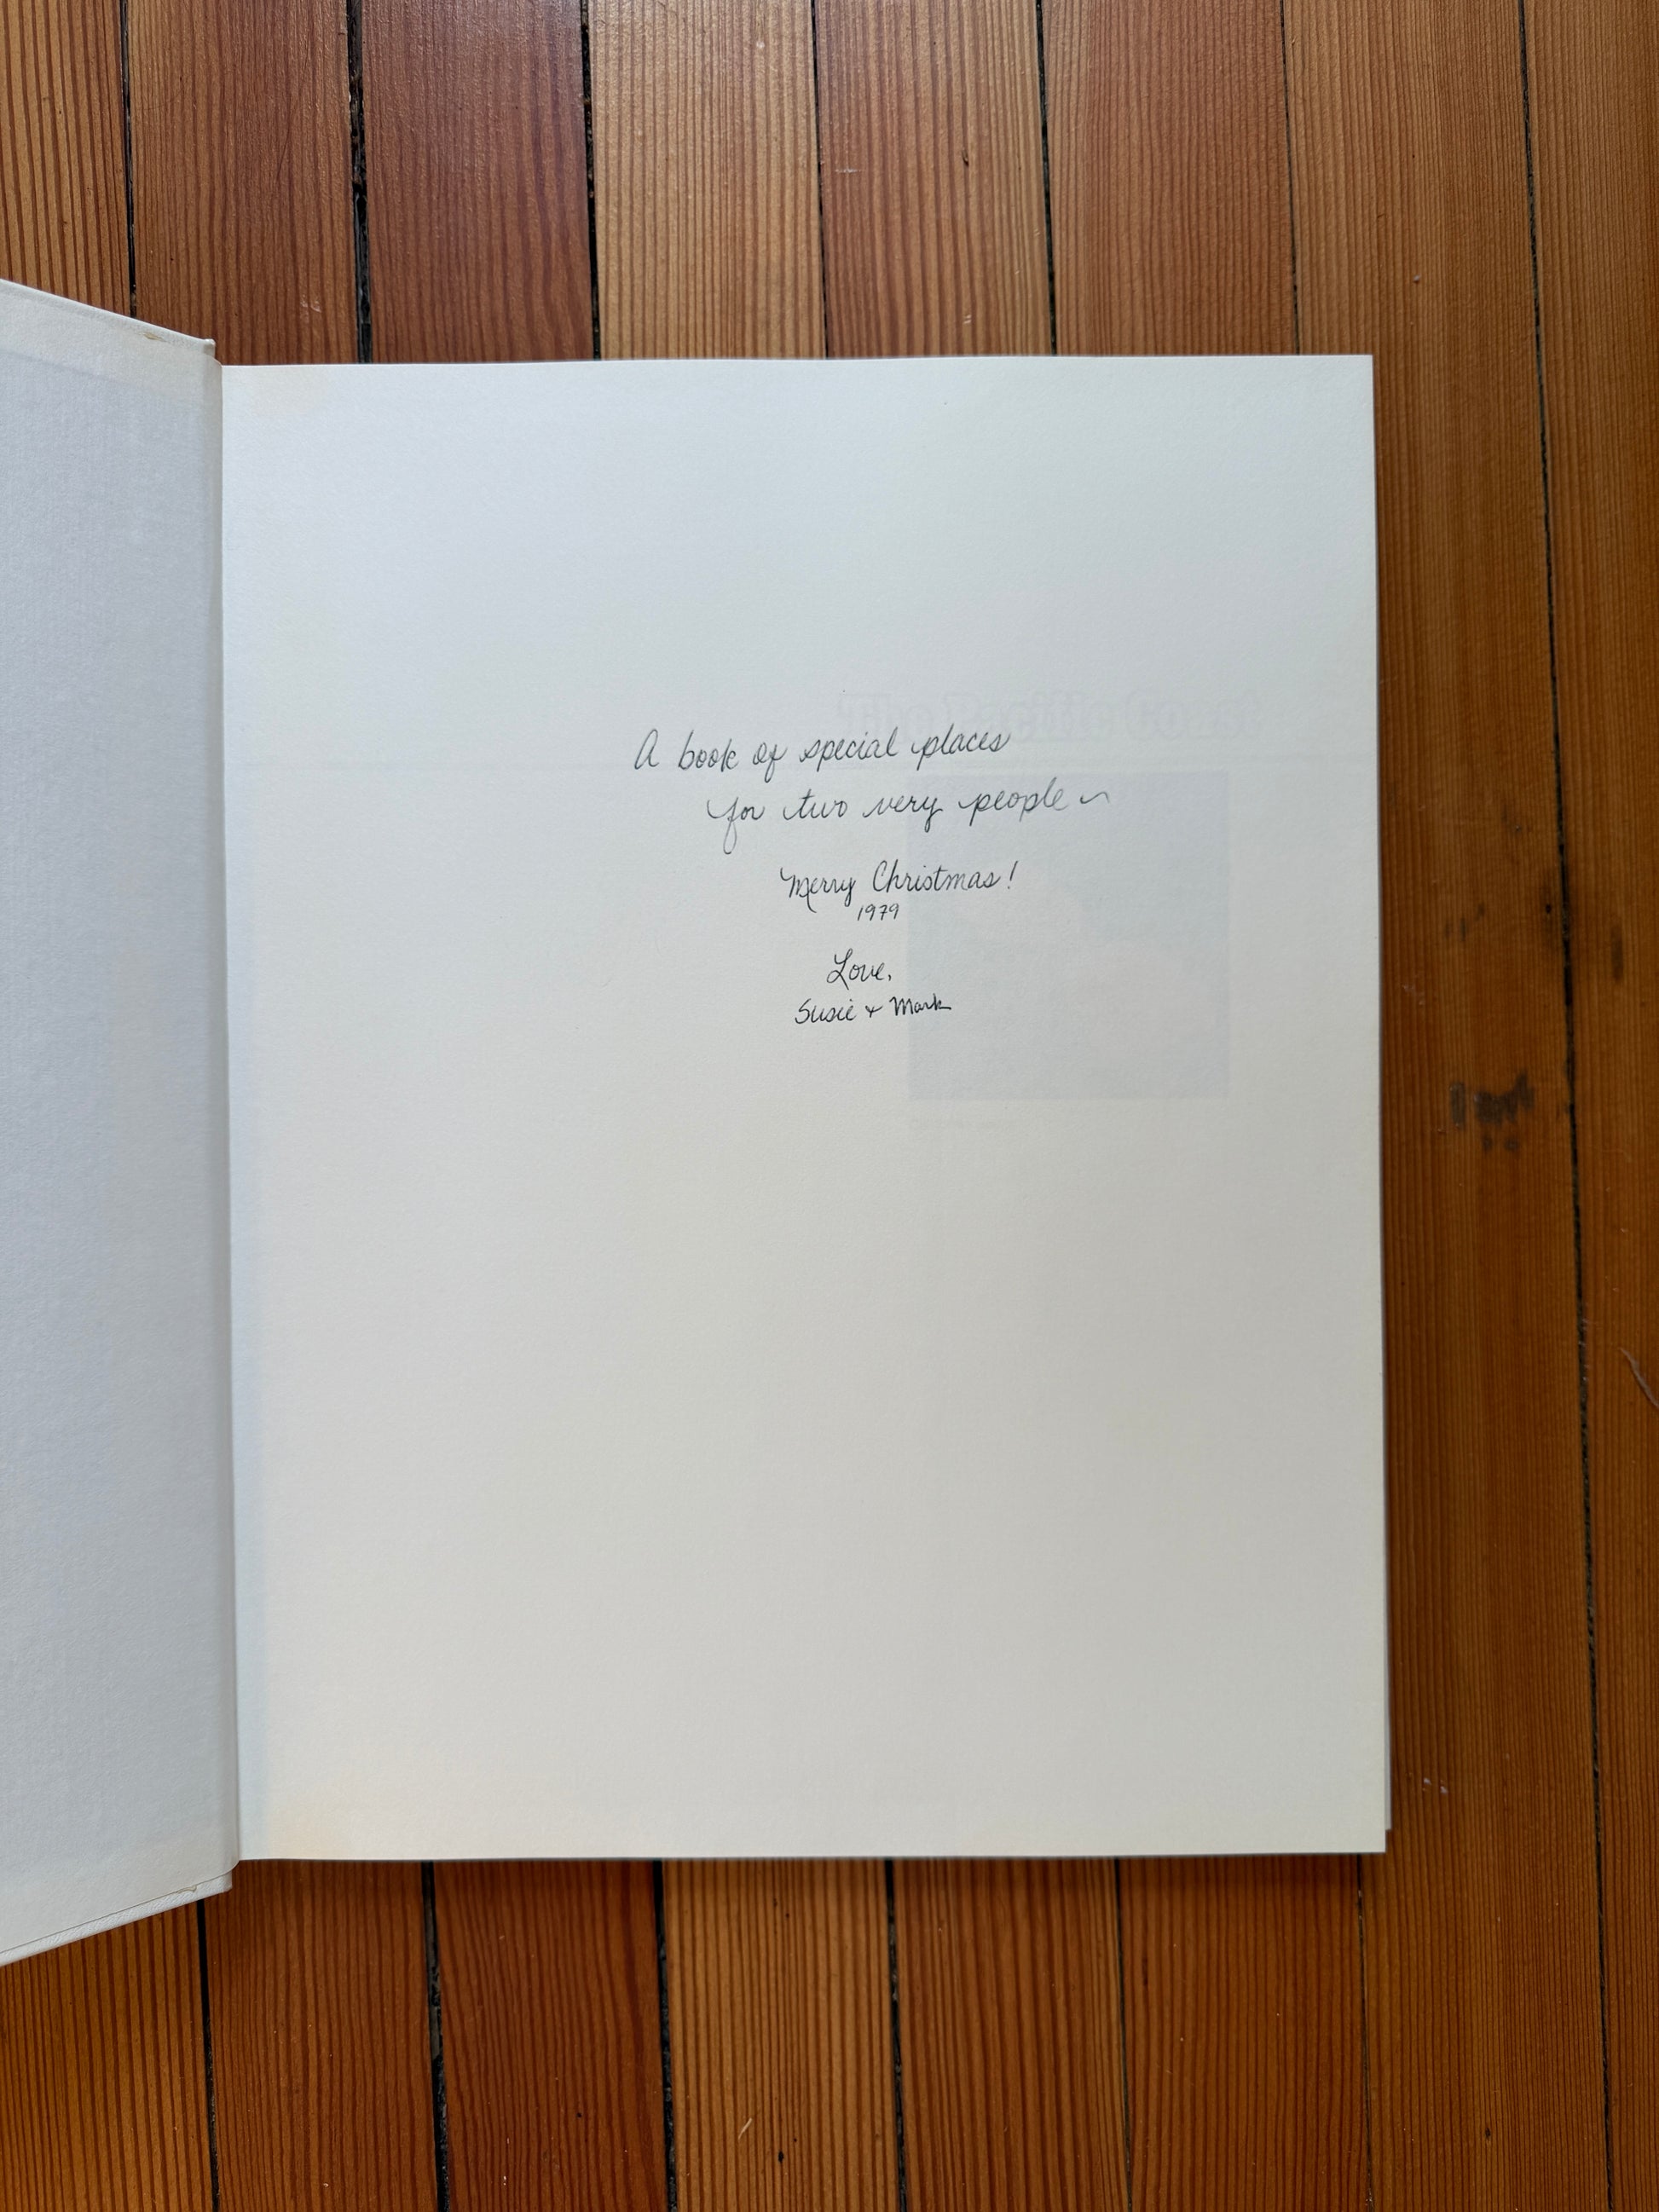 The Pacific Coast
A book of special places
for two very people ~
Merry Christmas!
1979
Love,
Susie + Mark